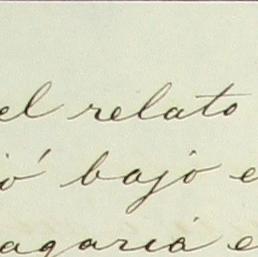 el relato
ió bajo e
agaria e